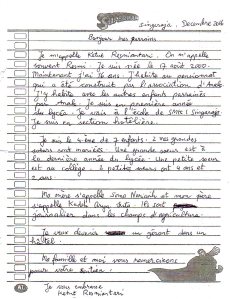 Singaraja, Decembre 2016
Bonjour mes parrains
Je m'appelle Ketut Resmiantari. On m'appelle
souvent Resmi. Je suis née le 17 août 2000.
Maintenant j'ai 16 ans. J'habite au pensionnat
qui a été construit par l'association d'Anak
J'y habite avec les autres enfants parrainés
par Anak. Je suis en première année
du lycée. Je vais à l'école de SMK 1 Singaraja
Je suis en section hôtelière.
Je suis le 4ème de 7 enfants. 2 mes grandes
sœurs sont mariées. Une grande sœur est à
la dernière année du lycée. Une petite sœur
est au collège. 2 petits sœurs ont 4 ans et
2 ans.
Ma mère s'appelle et mon père
s'appelle Kadek. Ils sont
journalier dans les champs d'agriculture.
Je veux devenir un gérant dans un
hôtel.
Ma famille et moi vous remercions
pour votre soutien.
Je vous embrasse
Ketut Resmiantari